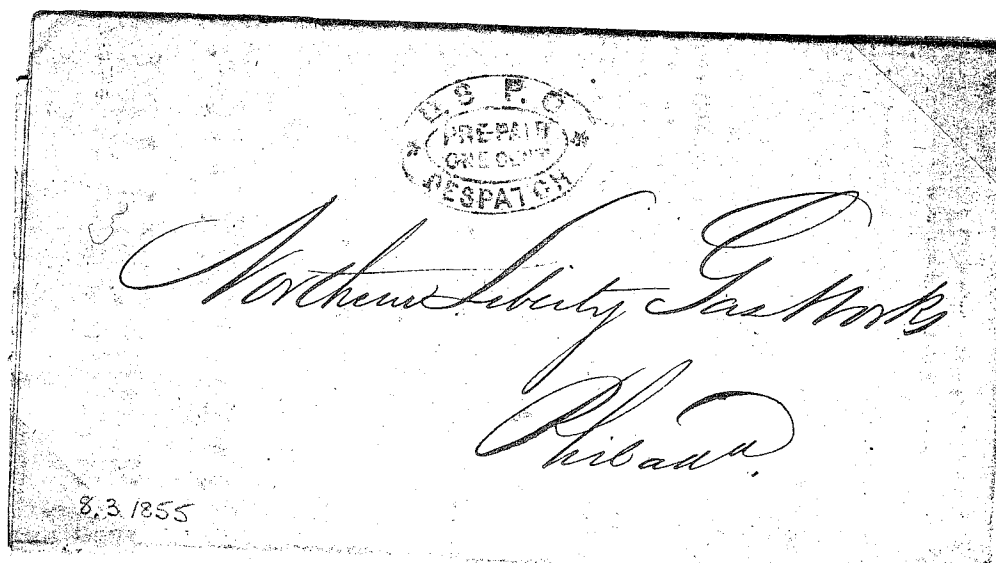 U.S. P.O.
* PRE-PAID *
ONE CENT
DESPATCH
Northern Liberty Gas Works
Philadᵃ.
8.3.1855